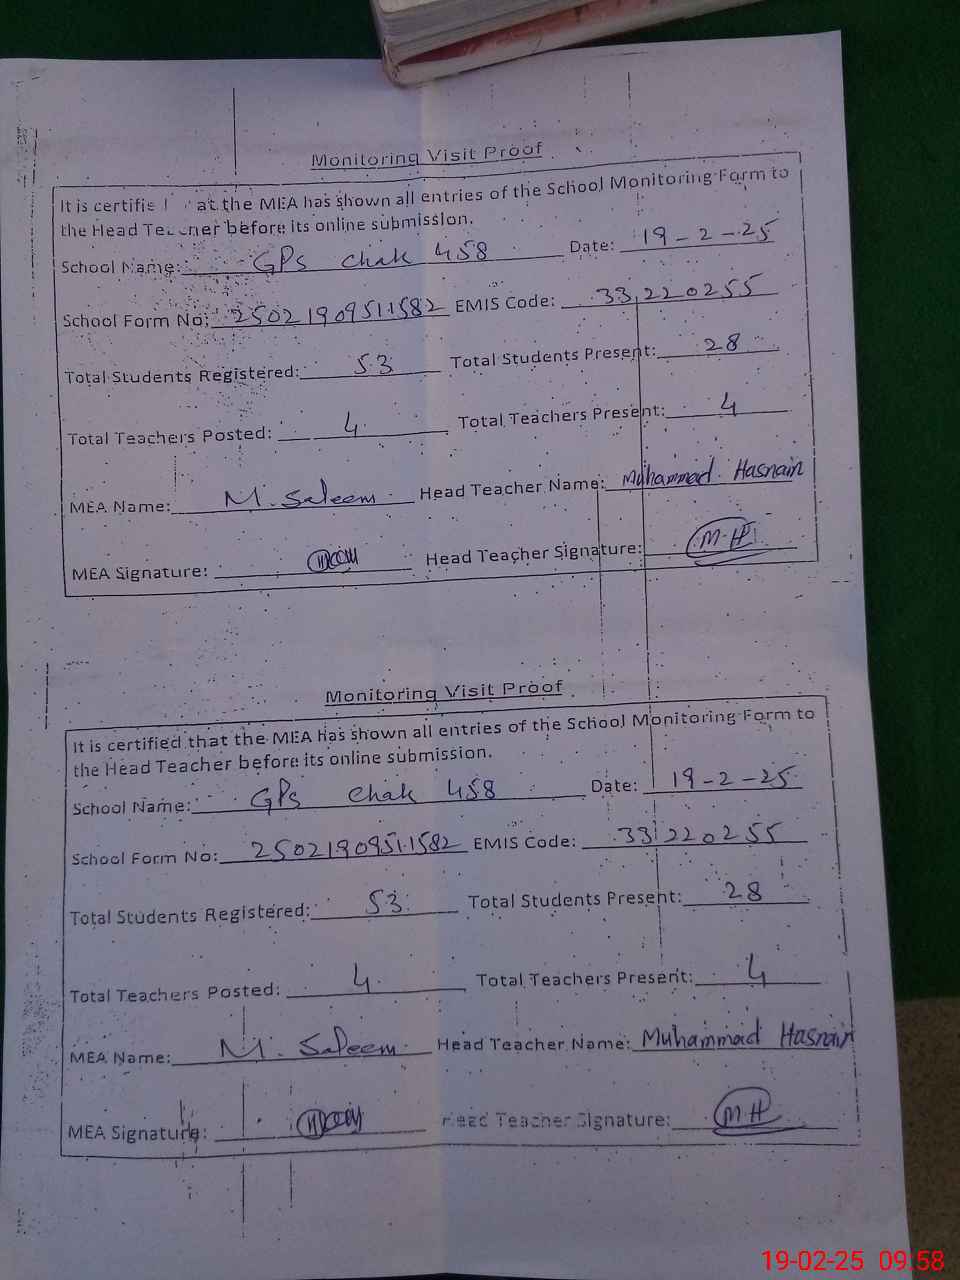 Monitoring Visit Proof
It is certified that the MEA has shown all entries of the School Monitoring Form to
the Head Teacher before its online submission.
School Name: GPS chak 458 Date: 19-2-25
School Form No: 25021909511582 EMIS Code: 33220255
Total Students Registered: 53 Total Students Present: 28
Total Teachers Posted: 4 Total Teachers Present: 4
MEA Name: M. Saleem Head Teacher Name: Muhammad Hasnain
MEA Signature: Head Teacher Signature: M.H
Monitoring Visit Proof
It is certified that the MEA has shown all entries of the School Monitoring Form to
the Head Teacher before its online submission.
School Name: GPS chak 458 Date: 19-2-25
School Form No: 25021909511582 EMIS Code: 33220255
Total Students Registered: 53 Total Students Present: 28
Total Teachers Posted: 4 Total Teachers Present: 4
MEA Name: M. Saleem Head Teacher Name: Muhammad Hasnain
MEA Signature: Head Teacher Signature: M.H
19-02-25 09:58